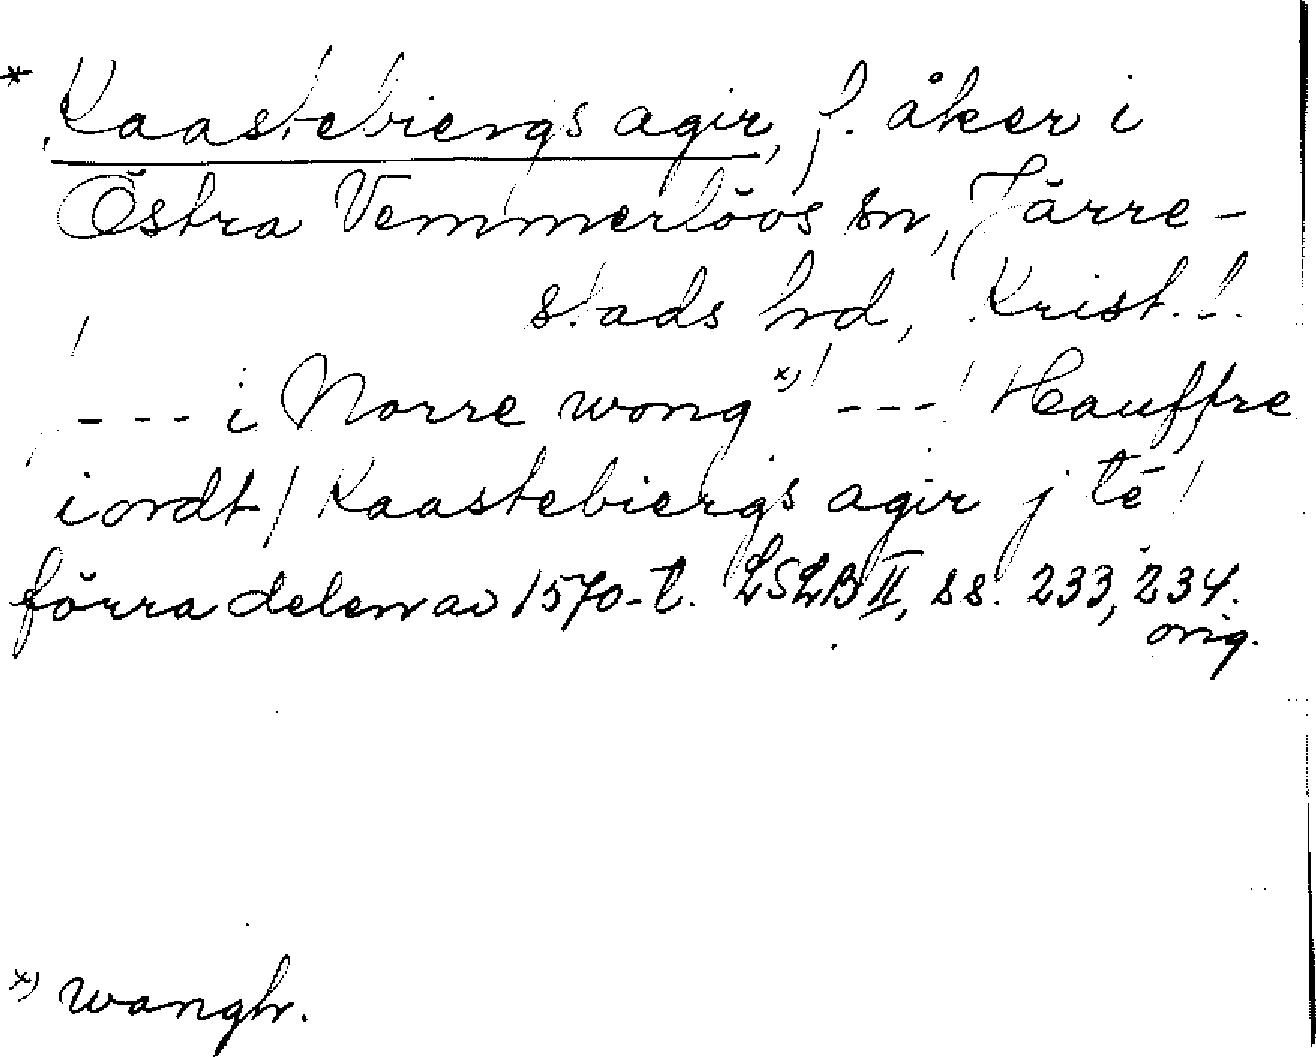 * Kaastebiergs agir, f. åker i
Östra Vemmerlövs sn, Järre-
stads hrd, Krist. l.
- - - i Norre wong x) - - - Hauffre
iordt / Kaastebiergs agir j té
förra delen av 1570-t. LSLB II, ss. 233, 234.
orig.
x) wangh.